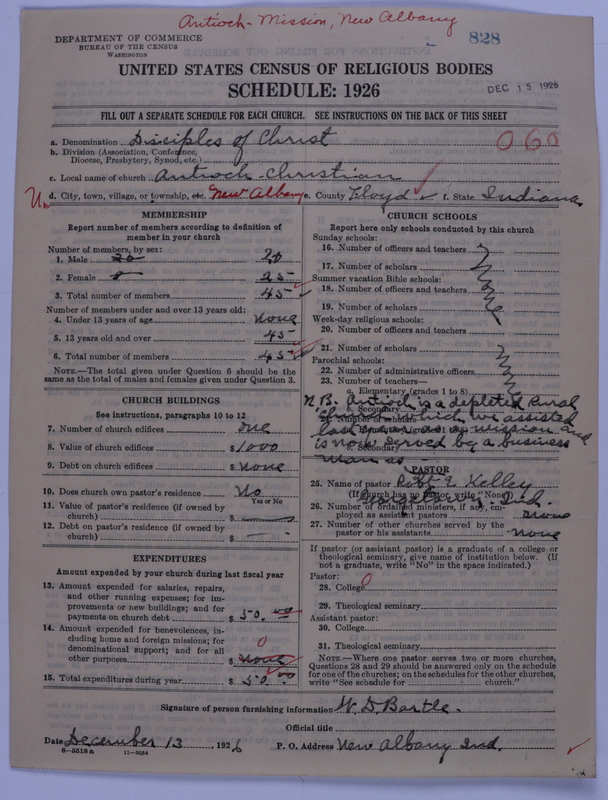 Antioch-Mission, New Albany
828
DEPARTMENT OF COMMERCE
BUREAU OF THE CENSUS
WASHINGTON
UNITED STATES CENSUS OF RELIGIOUS BODIES
SCHEDULE: 1926
DEC 15 1926
FILL OUT A SEPARATE SCHEDULE FOR EACH CHURCH. SEE INSTRUCTIONS ON THE BACK OF THIS SHEET
a. Denomination Disciples of Christ 060
b. Division (Association, Conference, Diocese, Presbytery, Synod, etc.)
c. Local name of church Antioch-Christian
d. City, town, village, or township, etc. New Albany e. County Floyd f. State Indiana
MEMBERSHIP
Report number of members according to definition of member in your church
Number of members, by sex:
1. Male 20 20
2. Female 25
3. Total number of members 45
Number of members under and over 13 years old:
4. Under 13 years of age none
5. 13 years old and over 45
6. Total number of members 45
NOTE.—The total given under Question 6 should be the same as the total of males and females given under Question 3.
CHURCH BUILDINGS
See instructions, paragraphs 10 to 12
7. Number of church edifices one
8. Value of church edifices $1000
9. Debt on church edifices $none
10. Does church own pastor's residence No
Yes or No
11. Value of pastor's residence (if owned by church) $
12. Debt on pastor's residence (if owned by church) $
EXPENDITURES
Amount expended by your church during last fiscal year
13. Amount expended for salaries, repairs, and other running expenses; for improvements or new buildings; and for payments on church debt $50.00
14. Amount expended for benevolences, including home and foreign missions; for denominational support; and for all other purposes 0 $none
15. Total expenditures during year $50.00
CHURCH SCHOOLS
Report here only schools conducted by this church
Sunday schools:
16. Number of officers and teachers
17. Number of scholars
Summer vacation Bible schools:
18. Number of officers and teachers
19. Number of scholars
Week-day religious schools:
20. Number of officers and teachers
21. Number of scholars
Parochial schools:
22. Number of administrative officers
23. Number of teachers—
a. Elementary (grades 1 to 8)
b. Secondary
N.B. Antioch is a depleted Rural
church which we assisted
last year as a mission and
is now served by a business
man as
PASTOR
25. Name of pastor Robt E. Kelley
(If church has no pastor, write "None")
Georgetown, Ind.
26. Number of ordained ministers, if any, employed as assistant pastors none
27. Number of other churches served by the pastor or his assistants none
If pastor (or assistant pastor) is a graduate of a college or theological seminary, give name of institution below. (If not a graduate, write "No" in the space indicated.)
Pastor:
28. College 0
29. Theological seminary
Assistant pastor:
30. College
31. Theological seminary
NOTE.—Where one pastor serves two or more churches, Questions 28 and 29 should be answered only on the schedule for one of the churches; on the schedules for the other churches, write "See schedule for church."
Signature of person furnishing information W. D. Bartle.
Official title
Date December 13, 1926 P. O. Address New Albany Ind.
8-5518 a 11-9054